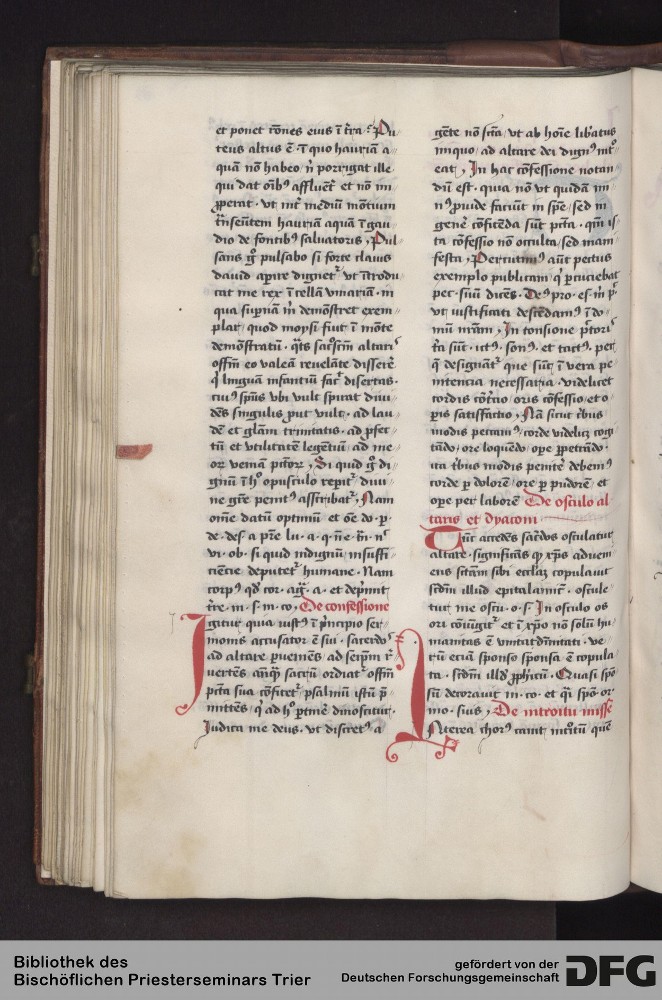 et ponet cōnes eius ī t̄ra · Pu
teus altus ē · ī quo hauriā a
quā nō habeo n̄ porrigat ille
qui dat oīb⁹ affluēt᷑ et nō im
ꝓperat · vt int᷑ mediū mōtium
hauriā aquā ī gau
dio de fontib⁹ saluatoris , Pul
sans g̊ pulsabo si forte clauis
dauid aperire dignet᷑ vt ītrodu
cat me rex ī cellā vinariā · in
qua supnā m̄ demōstret exem
plar quod moysi fuit ī mōte
demōstratū · altari
offm̄ eo valeā reuelāte disserē
q̇ linguā infantiū fac᷑ disertas ·
cui⁹ spūs vbi vult spirat diui
dēs singulis put vult · ad lau
dē et glām trinitatis · ad ꝓfec
tū et vtilitatē legētiū · ad me
or veniā pctōꝝ , Si quid g̊ di
gnū ī h° opusculo repit᷑ diui
ne grē penit⁹ asscribat᷑ , Nam
om̄e datū optimū et oē do · p ·
de · des · a pr̄e lu · a · q · n̄e · tn̄ · n᷑
vi · ob · si quid indignū insuffi
ciēcie deputet᷑ humane · Nam
corp⁹ qd̕ cor · aḡ · a · et dep̄mit
t̄re · in · s · m · co , De confessione
Igitur quia iust⁹ ī pncipio ser
monis accusator ē sui · sacerdo⁹
ad altare pueniēs ad seip̄m r᷑
uertēs anq̄ sacrū ordiat᷑ offm̄
pctā sua cōfitet᷑ psalmū istū p̄
mittēs · q̇ ad h° ptine dinoscitur ·
Iudica me deus · vt discret⁹ a
gēte nō scā vt ab hoīe lib̕atus
iniquo · ad altare dei dign⁹ int᷑
eat , In hac cōfessione notan
dū est · quia nō vt quidā im
n⁹ puide faciūt in spē sed in
gene᷑ cōficēda sūt pctā · qm̄ is
ta cōfessio nō occulta sed mani
festa , Percutim⁹ aūt pectus
exemplo publicani q̇ pcuciebat
pec · suū dicēs · De⁹ pro · es · m̄ p᷑ ·
vt iustificati descēdam⁹ ī do
mū nr̄am , In tonsione p̄toris
t̄ia sūt · ict⁹ · son⁹ · et tact⁹ · per
q̄ designāt᷑ que sūt ī vera pe
nitencia necessaria · videlicet
cordis cōtricio oris cōfessio et o
pis satisfactio , Nā sicut trib⁹
modis peccam⁹ corde videlicz cogi
tādo ore loquēdo ope ppetrādo ·
ita trib⁹ modis penite᷑ debem⁹
corde p dolorē ore p pudorē et
ope per laborē De osculo al
taris et dyaconi
Tūc accedēs sacdos osculatur
altare · significās q̨ xp̄s adueni
ens sctām sibi eccl̄iaz copulauit
scdm̄ illud epitalamic̄ · oscule
tur me oscu · o · s · In osculo os
ori cōiūgit᷑ et ī xp̄o nō solū hu
manitas ē vnita diuitati · ve
rū eciā sponso sponsa ē copula
ta · scdm̄ ill̕d̕ pp̄hicū · Quasi spō
sū decorauit in · co · et q̇ spō · or
mo · suis , De introitu misse
Interea chor⁹ canit introitū que
Bibliothek des
Bischöflichen Priesterseminars Trier
gefördert von der
Deutschen Forschungsgemeinschaft
DFG